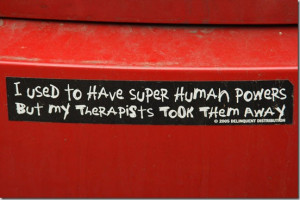 I USED TO HAVE SUPER HUMAN POWERS
BUT MY THERAPISTS TOOK THEM AWAY
© 2005 DELINQUENT DISTRIBUTION